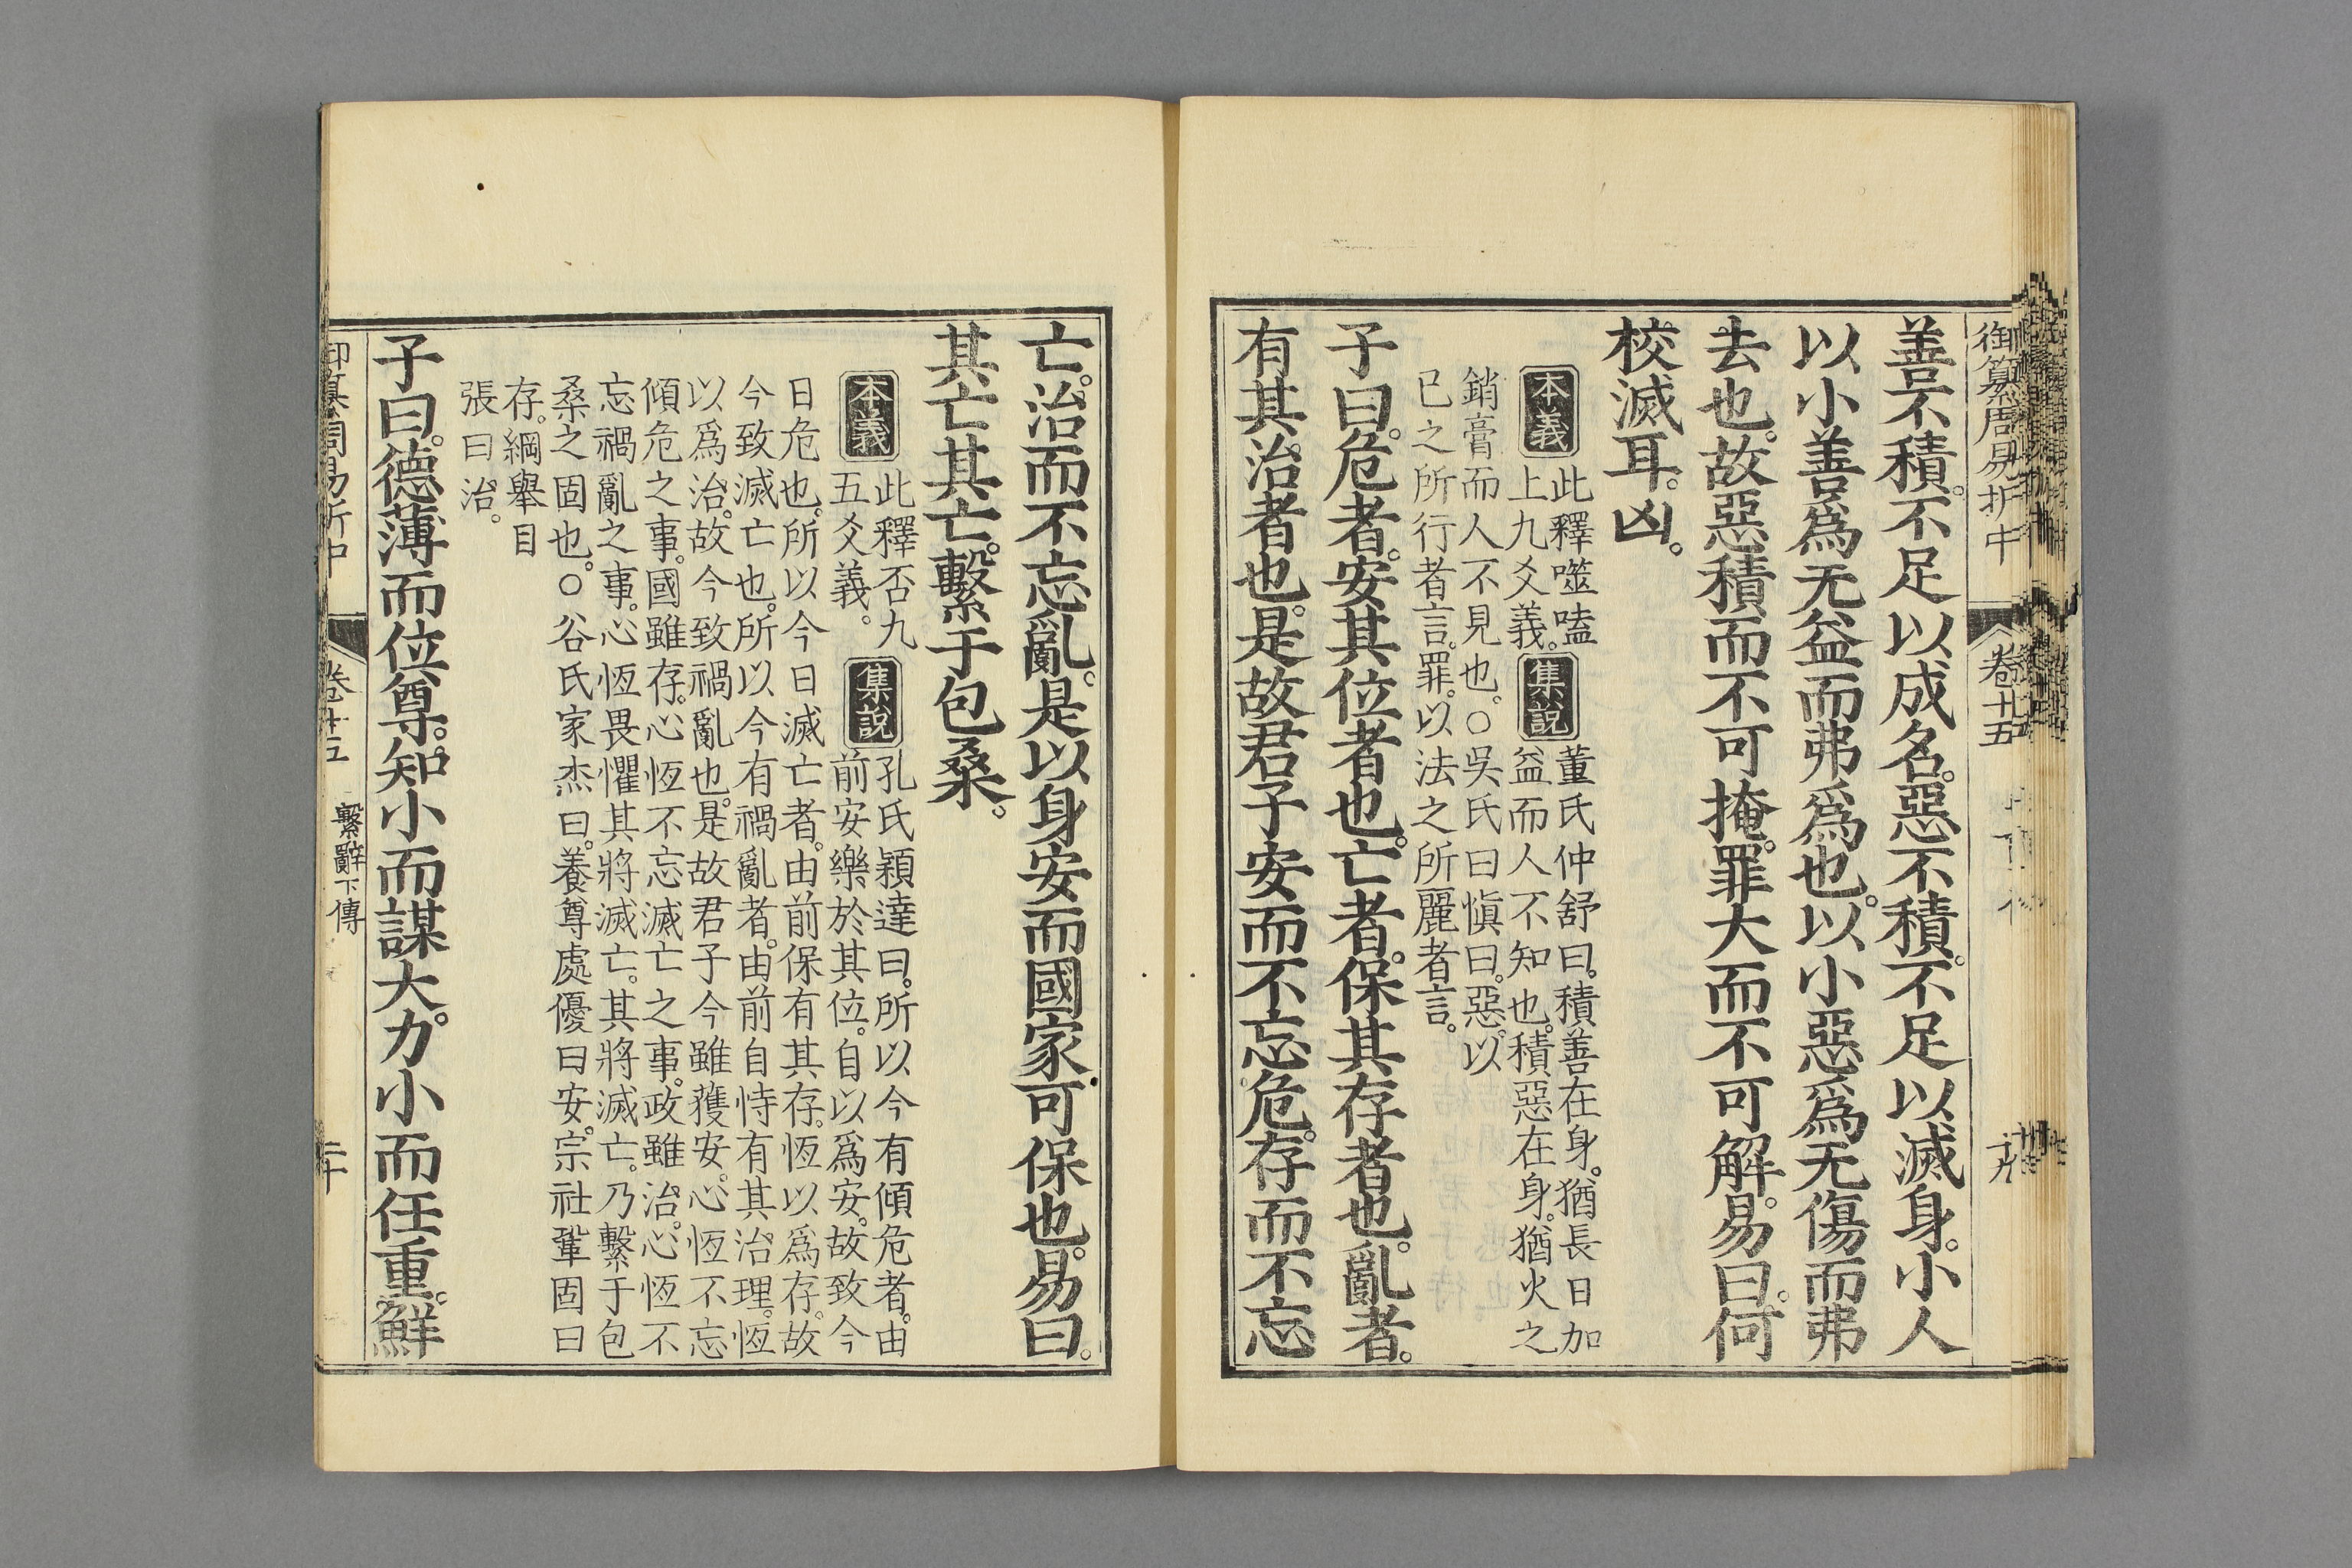 御纂周易折中 卷十五 十九
善不積。不足以成名。惡不積。不足以滅身。小人
以小善爲无益而弗爲也。以小惡爲无傷而弗
去也。故惡積而不可掩。罪大而不可解。易曰。何
校滅耳。凶。
本義
此釋噬嗑
上九爻義。
集說
董氏仲舒曰。積善在身。猶長日加
益而人不知也。積惡在身。猶火之
銷膏而人不見也。○吳氏曰愼曰。惡。以
已之所行者言。罪。以法之所麗者言。
子曰。危者。安其位者也。亡者。保其存者也。亂者。
有其治者也。是故君子安而不忘危。存而不忘
亡。治而不忘亂。是以身安而國家可保也。易曰。
其亡其亡。繫于包桑。
本義
此釋否九
五爻義。
集說
孔氏穎達曰。所以今有傾危者。由
前安樂於其位。自以爲安。故致今
日危也。所以今日滅亡者。由前保有其存。恆以爲存。故
今致滅亡也。所以今有禍亂者。由前自恃有其治理。恆
以爲治。故今致禍亂也。是故君子今雖獲安。心恆不忘
傾危之事。國雖存。心恆不忘滅亡之事。政雖治。心恆不
忘禍亂之事。心恆畏懼其將滅亡。其將滅亡。乃繫于包
桑之固也。○谷氏家杰曰。養尊處優曰安。宗社鞏固曰
存。綱舉目
張曰治。
子曰。德薄而位尊。知小而謀大。力小而任重。鮮
御纂周易折中 卷十五 繫辭下傳 二十